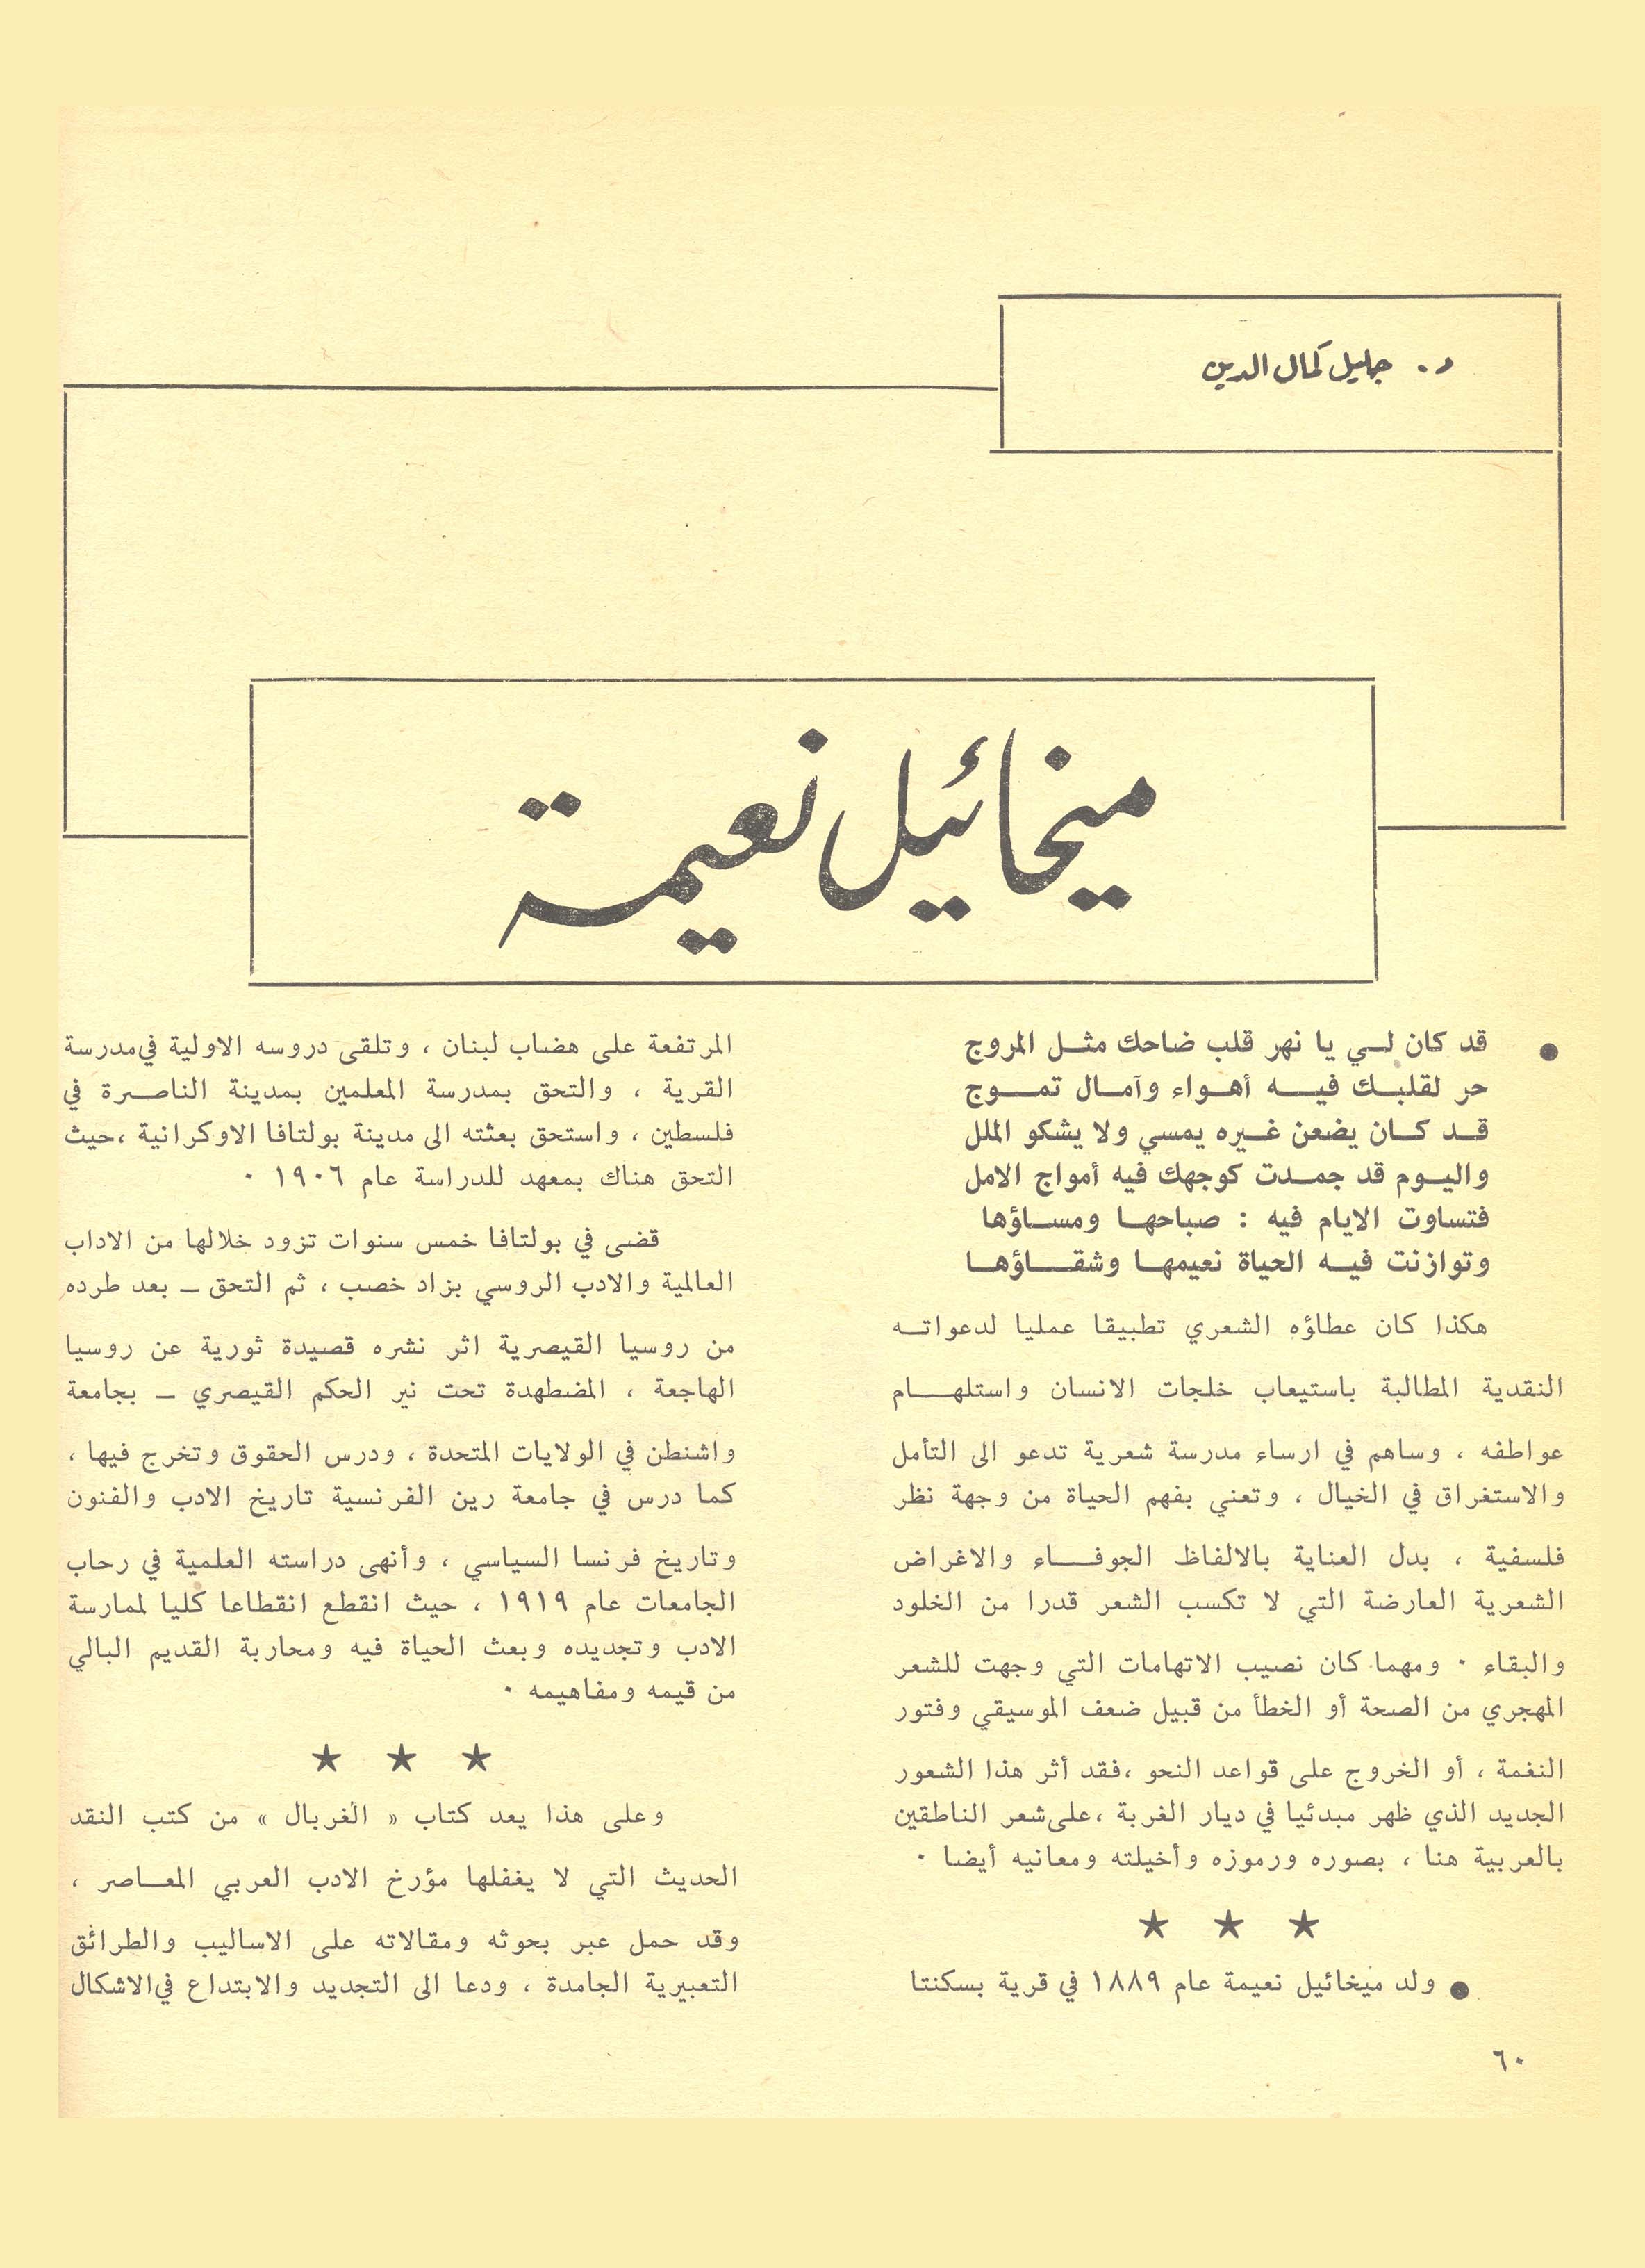 د. جليل كمال الدين
ميخائيل نعيمة
● قد كان لي يا نهر قلب ضاحك مثل المروج
حر لقلبك فيه أهواء وآمال تموج
قد كان يضعن غيره يمسي ولا يشكو الملل
واليوم قد جمدت كوجهك فيه أمواج الامل
فتساوت الايام فيه : صباحها ومساؤها
وتوازنت فيه الحياة نعيمها وشقاؤها
هكذا كان عطاؤه الشعري تطبيقا عمليا لدعواته
النقدية المطالبة باستيعاب خلجات الانسان واستلهام
عواطفه ، وساهم في ارساء مدرسة شعرية تدعو الى التأمل
والاستغراق في الخيال ، وتعني بفهم الحياة من وجهة نظر
فلسفية ، بدل العناية بالالفاظ الجوفاء والاغراض
الشعرية العارضة التي لا تكسب الشعر قدرا من الخلود
والبقاء . ومهما كان نصيب الاتهامات التي وجهت للشعر
المهجري من الصحة أو الخطأ من قبيل ضعف الموسيقي وفتور
النغمة ، أو الخروج على قواعد النحو ،فقد أثر هذا الشعور
الجديد الذي ظهر مبدئيا في ديار الغربة ،على شعر الناطقين
بالعربية هنا ، بصوره ورموزه وأخيلته ومعانيه أيضا .
★ ★ ★
● ولد ميخائيل نعيمة عام ١٨٨٩ في قرية بسكنتا
المرتفعة على هضاب لبنان ، وتلقى دروسه الاولية في مدرسة
القرية ، والتحق بمدرسة المعلمين بمدينة الناصرة في
فلسطين ، واستحق بعثته الى مدينة بولتافا الاوكرانية ،حيث
التحق هناك بمعهد للدراسة عام ١٩٠٦ .
قضى في بولتافا خمس سنوات تزود خلالها من الاداب
العالمية والادب الروسي بزاد خصب ، ثم التحق – بعد طرده
من روسيا القيصرية اثر نشره قصيدة ثورية عن روسيا
الهاجعة ، المضطهدة تحت نير الحكم القيصري – بجامعة
واشنطن في الولايات المتحدة ، ودرس الحقوق وتخرج فيها ،
كما درس في جامعة رين الفرنسية تاريخ الادب والفنون
وتاريخ فرنسا السياسي ، وأنهى دراسته العلمية في رحاب
الجامعات عام ١٩١٩ ، حيث انقطع انقطاعا كليا لممارسة
الادب وتجديده وبعث الحياة فيه ومحاربة القديم البالي
من قيمه ومفاهيمه .
★ ★ ★
وعلى هذا يعد كتاب « الغربال » من كتب النقد
الحديث التي لا يغفلها مؤرخ الادب العربي المعاصر ،
وقد حمل عبر بحوثه ومقالاته على الاساليب والطرائق
التعبيرية الجامدة ، ودعا الى التجديد والابتداع في الاشكال
٦٠